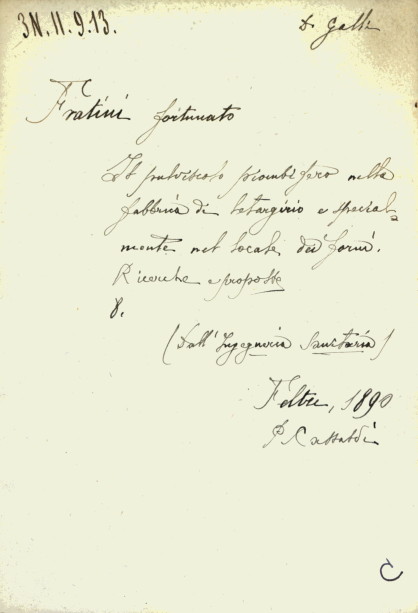 3N. 11. 9. 13.
Dr Galli
Fratini Fortunato
Il pulviscolo piombifero nella
fabbrica di litargirio e special
mente nel locale dei forni.
Ricerche e proposte
8.
(Dall' Ingegneria Sanitaria)
Feltre, 1890
P. Castaldi
C